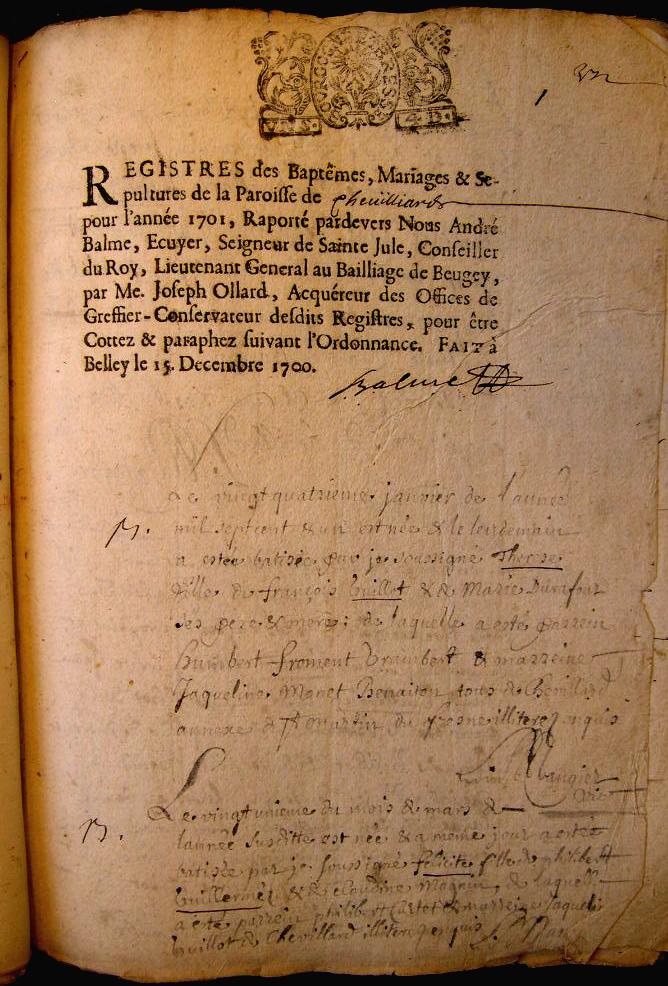 BOURGOGNE BRESSE
4 D.
REGISTRES des Baptêmes, Mariages & Se-
pultures de la Paroisse de Cheuilliard
pour l'année 1701, Raporté pardevers Nous André
Balme, Ecuyer, Seigneur de Sainte Jule, Conseiller
du Roy, Lieutenant General au Bailliage de Beugey,
par Me. Joseph Ollard, Acquéreur des Offices de
Greffier-Conservateur desdits Registres, pour être
Cottez & paraphez suivant l'Ordonnance. FAIT à
Belley le 15. Decembre 1700.
Balme
Le vingtquatrieme janvier de l'année
B. mil septcent & un est née & le lendemain
a estée batisée par je soussigné Therese
fille de françois Guillot & de Marie Durafour
ses pere & mere: de laquelle a esté parrein
humbert froment & marreine
Jaqueline Monet tous de Chevillard
annexe de St martin du fresne illiteres enquis
Le vingtunieme du mois de mars de
B. lannée susditte est née & a meme jour a estée
batisée par je soussigné felicité fille de philibert
Guillermet & de Claudine & de laquelle
a esté parrein philibert & marreine Jaqueli
Guillot de Chevillard illiteres enquis